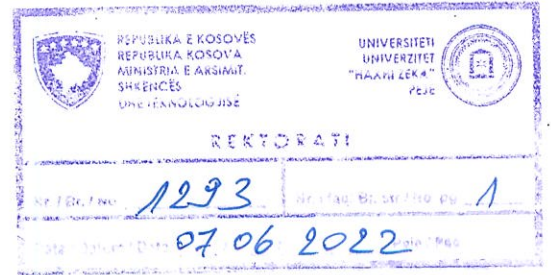 REPUBLIKA E KOSOVËS
REPUBLIKA KOSOVA
MINISTRIA E ARSIMIT
SHKENCËS
DHE TEKNOLOGJISË
UNIVERSITETI
UNIVERZITET
"HAXHI ZEKA"
PEJË
REKTORATI
Nr / Br. / No 1293
1
07 06 2022